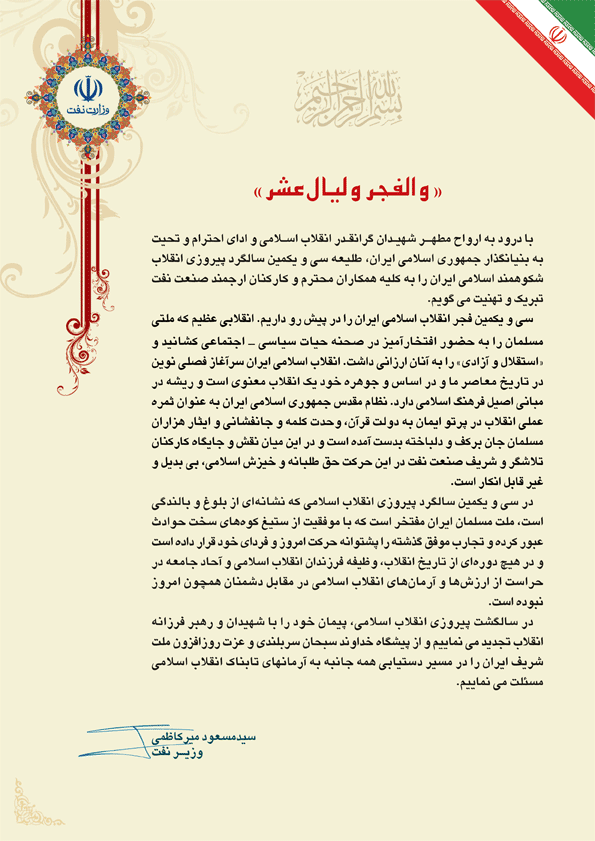 بسم الله الرحمن الرحیم
وزارت نفت
« والفجر ولیال عشر »
با درود به ارواح مطهـر شهیـدان گرانقـدر انقلاب اسـلامی و ادای احترام و تحیت
به بنیانگذار جمهوری اسلامی ایران، طلیعه سی و یکمین سالگرد پیروزی انقلاب
شکوهمند اسلامی ایران را به کلیه همکاران محترم و کارکنان ارجمند صنعت نفت
تبریک و تهنیت می گویم.
سی و یکمین فجر انقلاب اسلامی ایران را در پیش رو داریم. انقلابی عظیم که ملتی
مسلمان را به حضور افتخارآمیز در صحنه حیات سیاسی – اجتماعی کشانید و
«استقلال و آزادی» را به آنان ارزانی داشت. انقلاب اسلامی ایران سرآغاز فصلی نوین
در تاریخ معاصر ما و در اساس و جوهره خود یک انقلاب معنوی است و ریشه در
مبانی اصیل فرهنگ اسلامی دارد. نظام مقدس جمهوری اسلامی ایران به عنوان ثمره
عملی انقلاب در پرتو ایمان به دولت قرآن، وحدت کلمه و جانفشانی و ایثار هزاران
مسلمان جان برکف و دلباخته بدست آمده است و در این میان نقش و جایگاه کارکنان
تلاشگر و شریف صنعت نفت در این حرکت حق طلبانه و خیزش اسلامی، بی بدیل و
غیر قابل انکار است.
در سی و یکمین سالگرد پیروزی انقلاب اسلامی که نشانه‌ای از بلوغ و بالندگی
است، ملت مسلمان ایران مفتخر است که با موفقیت از ستیغ کوه‌های سخت حوادث
عبور کرده و تجارب موفق گذشته را پشتوانه حرکت امروز و فردای خود قرار داده است
و در هیچ دوره‌ای از تاریخ انقلاب، وظیفه فرزندان انقلاب اسلامی و آحاد جامعه در
حراست از ارزش‌ها و آرمان‌های انقلاب اسلامی در مقابل دشمنان همچون امروز
نبوده است.
در سالگشت پیروزی انقلاب اسلامی، پیمان خود را با شهیدان و رهبر فرزانه
انقلاب تجدید می نماییم و از پیشگاه خداوند سبحان سربلندی و عزت روزافزون ملت
شریف ایران را در مسیر دستیابی همه جانبه به آرمانهای تابناک انقلاب اسلامی
مسئلت می نماییم.
سیدمسعود میرکاظمی
وزیـر نفت